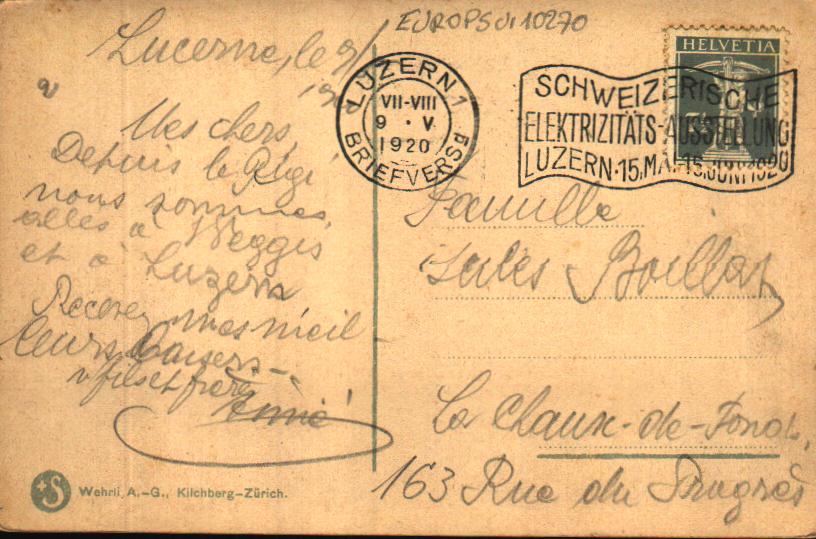 EUROPSUI10270
Lucerne, le 9/
Mes chers,
Depuis le Rigi
nous sommes
allés à Weggis
et à Luzern
Recevez mes meil
leurs baisers
v fils et frère
LUZERN 1
VII-VIII
9 · V.
1920
BRIEFVERSd
HELVETIA
SCHWEIZERISCHE
ELEKTRIZITÄTS-AUSSTELLUNG
LUZERN·15.MAI-15.JUNI 1920
Famille
Jules Boillat
La Chaux-de-Fonds,
163 Rue du Progrès
Wehrli A.-G., Kilchberg-Zürich.